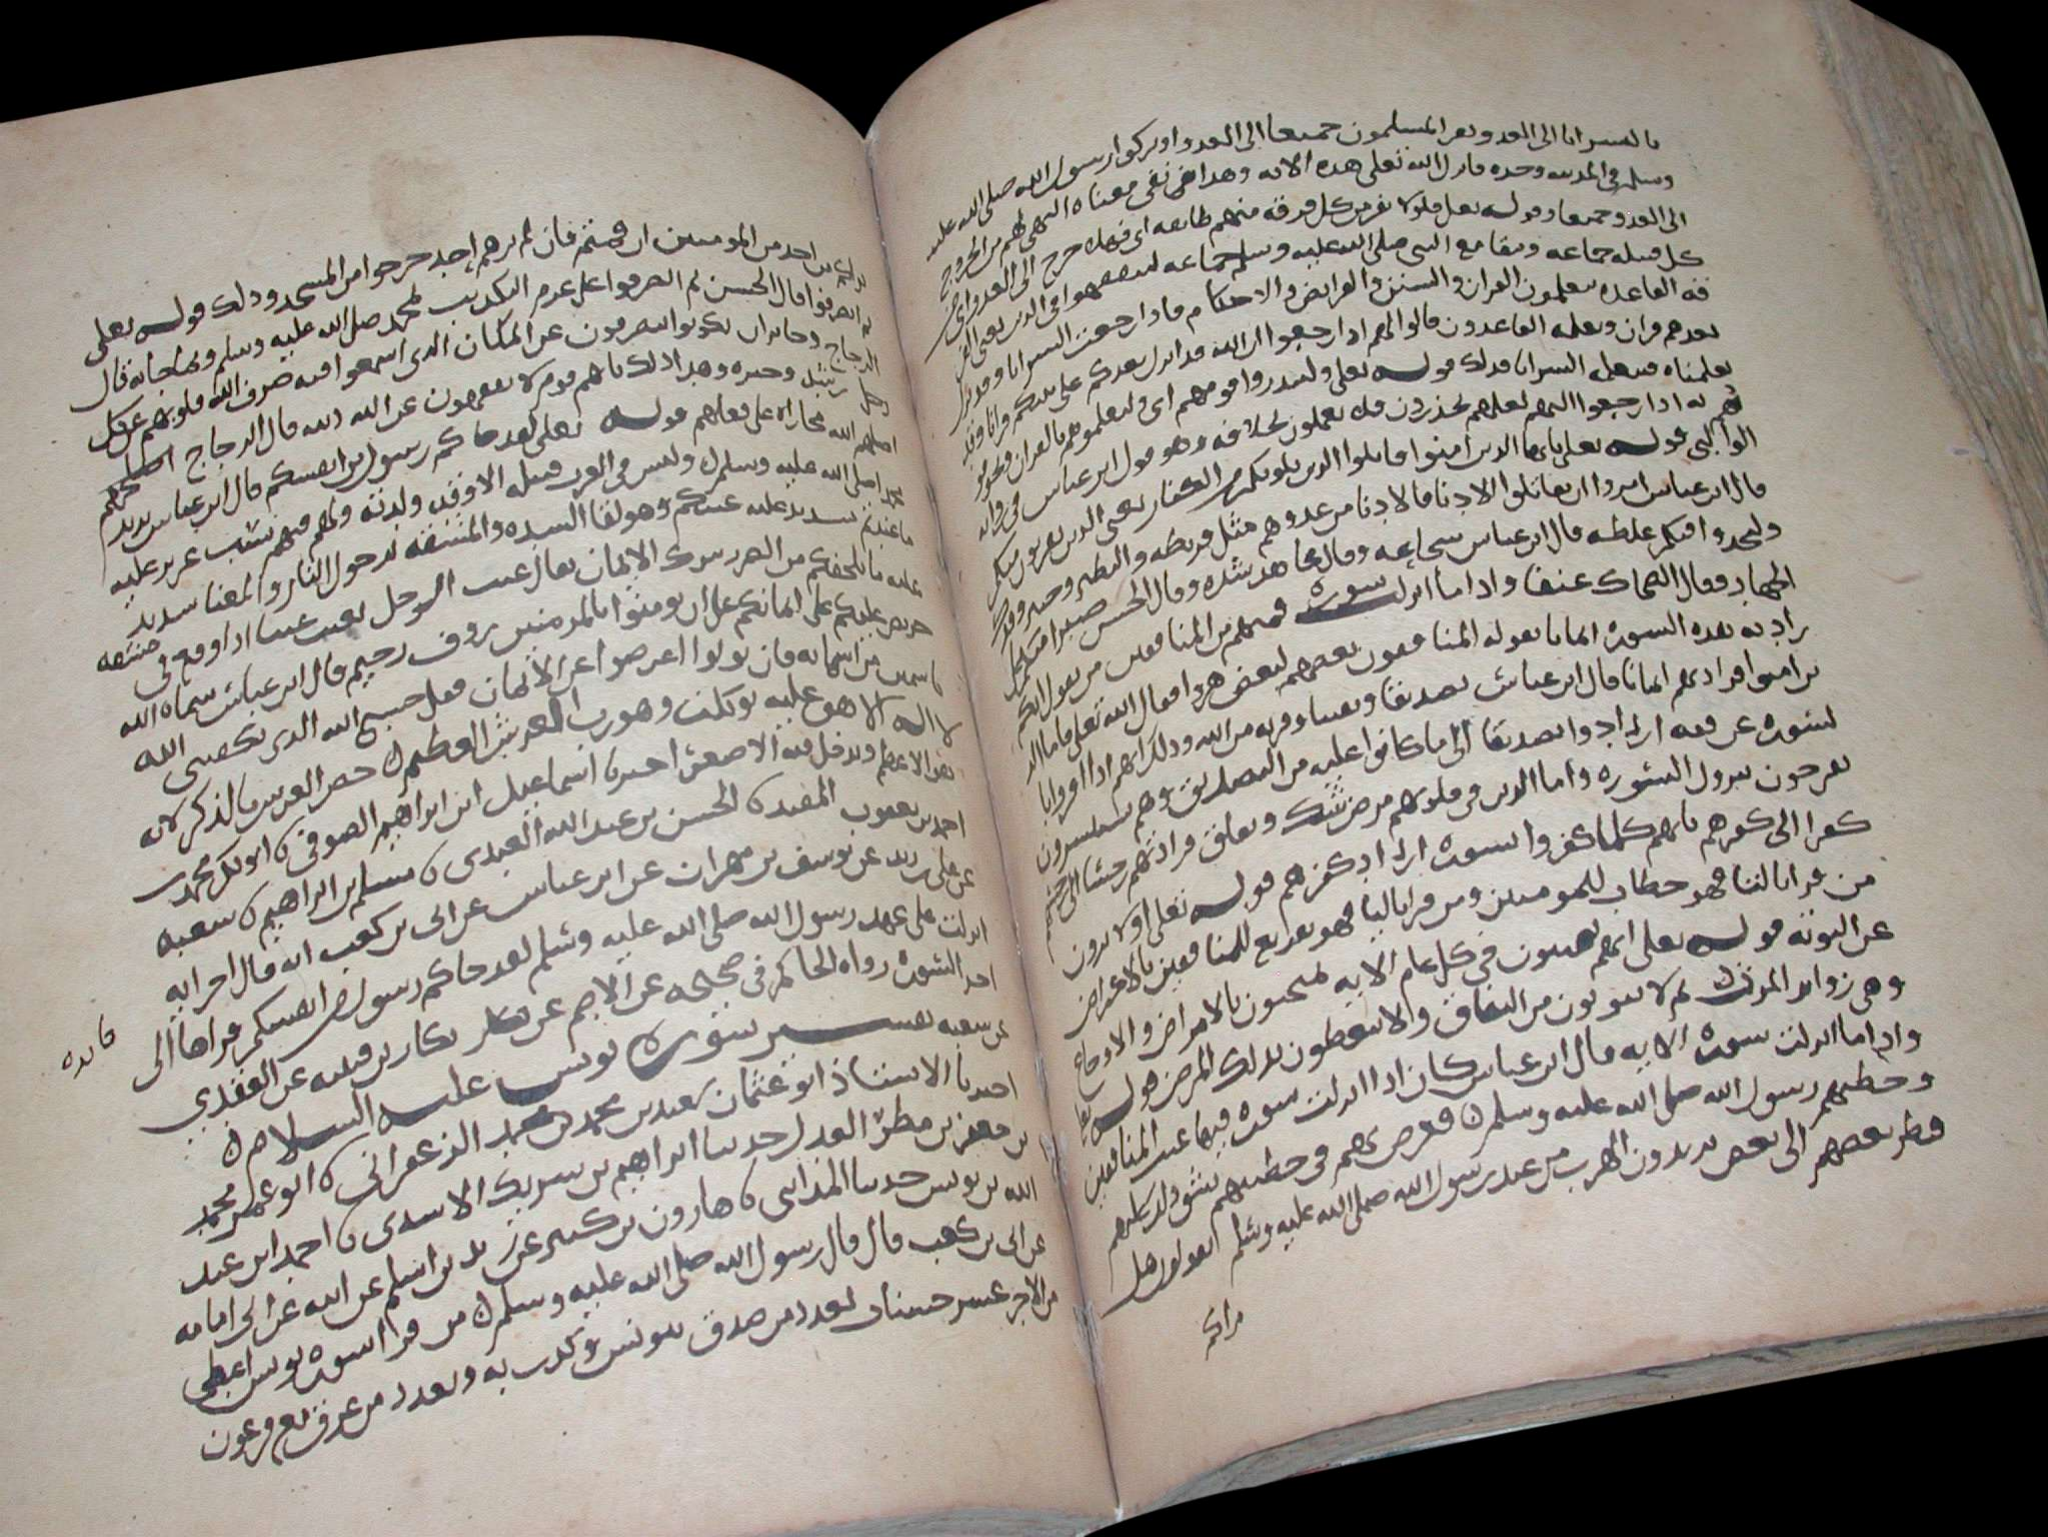 بالسرايا الى العدو ونفر المسلمون جميعا الى العدو وتركوا رسول الله صلى الله عليه
وسلم في المدينة وحده فانزل الله تعالى هذه الاية وهذا نفي معناه النهي لهم من الخروج
الى العدو جميعا وقوله تعالى فلولا نفر من كل فرقة منهم طايفة اي فهلا خرج الى العدو من
كل قبيلة جماعة وتبقا مع النبي صلى الله عليه وسلم جماعة ليتفقهوا في الدين يعني الفر
قة القاعدة يتعلمون القران والسنن والفرايض والاحكام فاذا رجعت السرايا وقد نزل
بعدهم قران وتعلمه القاعدون قالوا لهم اذا رجعوا ان الله قد انزل بعدكم على نبيكم قرانا وقد
تعلمناه فتتعلم السرايا فذلك قوله تعالى ولينذروا قومهم اي وليعلموهم بالقران ويخوفو
هم به اذا رجعوا اليهم لعلهم يحذرون فلا يعملون بخلافه وهو قول ابن عباس في رواية
الوالبي قوله تعالى يايها الذين امنوا قاتلوا الذين يلونكم من الكفار يعني الذين يقربون منكم
قال ابن عباس امروا ان يقاتلوا الادنا فالادنا من عدوهم مثل قريظة والنضير وخيبر وفدك
وليجدوا فيكم غلظة قال ابن عباس شجاعة وقال مجاهد شدة وقال الحسن صبرا على
الجهاد وقال الضحاك عنفا واذا ما انزلت سورة فمنهم من المنافقين من يقول ايكم
زادته هذه السورة ايمانا يقوله المنافقون بعضهم لبعض هزوا فقال الله تعالى فاما الذ
ين امنوا فزادتهم ايمانا قال ابن عباس تصديقا ويقينا وقربة من الله وذلك انهم اذا اقروا با
لسورة عن ثقة ازدادوا تصديقا الى ما كانوا عليه من التصديق وهم يستبشرون
يفرحون بنزول السورة واما الذين في قلوبهم مرض شك ونفاق فزادتهم رجسا الى رجسهم
كفرا الى كفرهم بانهم كلما كفروا بسورة ازداد كفرهم قوله تعالى اولا يرون
من قرا بالتا فهو خطاب للمومنين ومن قرا باليا فهو تقريع للمنافقين بالاعراض
عن التوبة قوله تعالى انهم يفتنون في كل عام الاية يمتحنون بالامراض والاوجاع
وهي زوايد الموت ثم لا يتوبون من النفاق ولا يتعظون بذلك المرض قوله تعالى
واذا ما انزلت سورة الاية قال ابن عباس كان اذا انزلت سورة فيها عيب المنافقين
وخطبهم رسول الله صلى الله عليه وسلم فعرض بهم في خطبته شق ذلك عليهم
فنظر بعضهم الى بعض يريدون الهرب من عند رسول الله صلى الله عليه وسلم يقولون هل
يراكم
يريكم من احد من المومنين ان قمتم فان لم يرهم احد خرجوا من المسجد وذلك قوله تعالى
ثم انصرفوا قال الحسن ثم انصرفوا على عزم التكذيب لمحمد صلى الله عليه وسلم وبما جا به قال
الزجاج وجايز ان يكونوا ينصرفون عن المكان الذي استمعوا فيه صرف الله قلوبهم عن كل
رشد وخير وهدا ذلك بانهم قوم لا يفقهون عن الله دينه قال الزجاج اضلهم
الله مجازاة على فعلهم قوله تعالى لقد جاكم رسول من انفسكم قال ابن عباس يريد
محمدا صلى الله عليه وسلم وليس في العرب قبيلة الا وقد ولدته ولهم فيهم نسب عزيز عليه
ما عنتم شديد عليه عنتكم وهو لقا الشدة والمشقة بدخول النار والمعنا شديد
عليه ما يلحقكم من الضرر بترك الايمان يقال عنت الرجل يعنت عنتا اذا وقع في مشقة
حريص عليكم على ايمانكم على ان تومنوا بالمومنين روف رحيم قال ابن عباس سماه الله
باسمين من اسمايه فان تولوا اعرضوا عن الايمان فقل حسبي الله الذي يكفيني الله
لا اله الا هو عليه توكلت وهو رب العرش العظيم خص العرش بالذكر لانه
الاعظم ويدخل فيه الاصغر اخبرنا اسماعيل ابن ابراهيم الصوفي نا ابو بكر محمد بن
احمد بن يعقوب المفيد نا الحسن بن عبد الله العبدي نا مسلم بن ابراهيم نا شعبة
عن علي بن زيد عن يوسف بن مهران عن ابن عباس عن ابي بن كعب انه قال اخر اية
انزلت على عهد رسول الله صلى الله عليه وسلم لقد جاكم رسول من انفسكم قراها الى
اخر السورة رواه الحاكم في صحيحه عن الاصم عن بكار بن قتيبة عن العقدي
عن شعبة تفسير سورة يونس عليه السلام
اخبرنا الاستاذ ابو عثمان سعيد بن محمد الزعفراني نا ابو عمرو محمد
بن جعفر بن مطر العدل حدثنا ابراهيم بن شريك الاسدي نا احمد ابن عبد
الله بن يونس حدثنا المدايني نا هارون بن كثير عن زيد بن اسلم عن ابيه عن ابي امامة
عن ابي بن كعب قال قال رسول الله صلى الله عليه وسلم من قرا سورة يونس اعطي
من الاجر عشر حسنات بعدد من صدق بيونس وكذب به وبعدد من غرق مع فرعون
فايدة